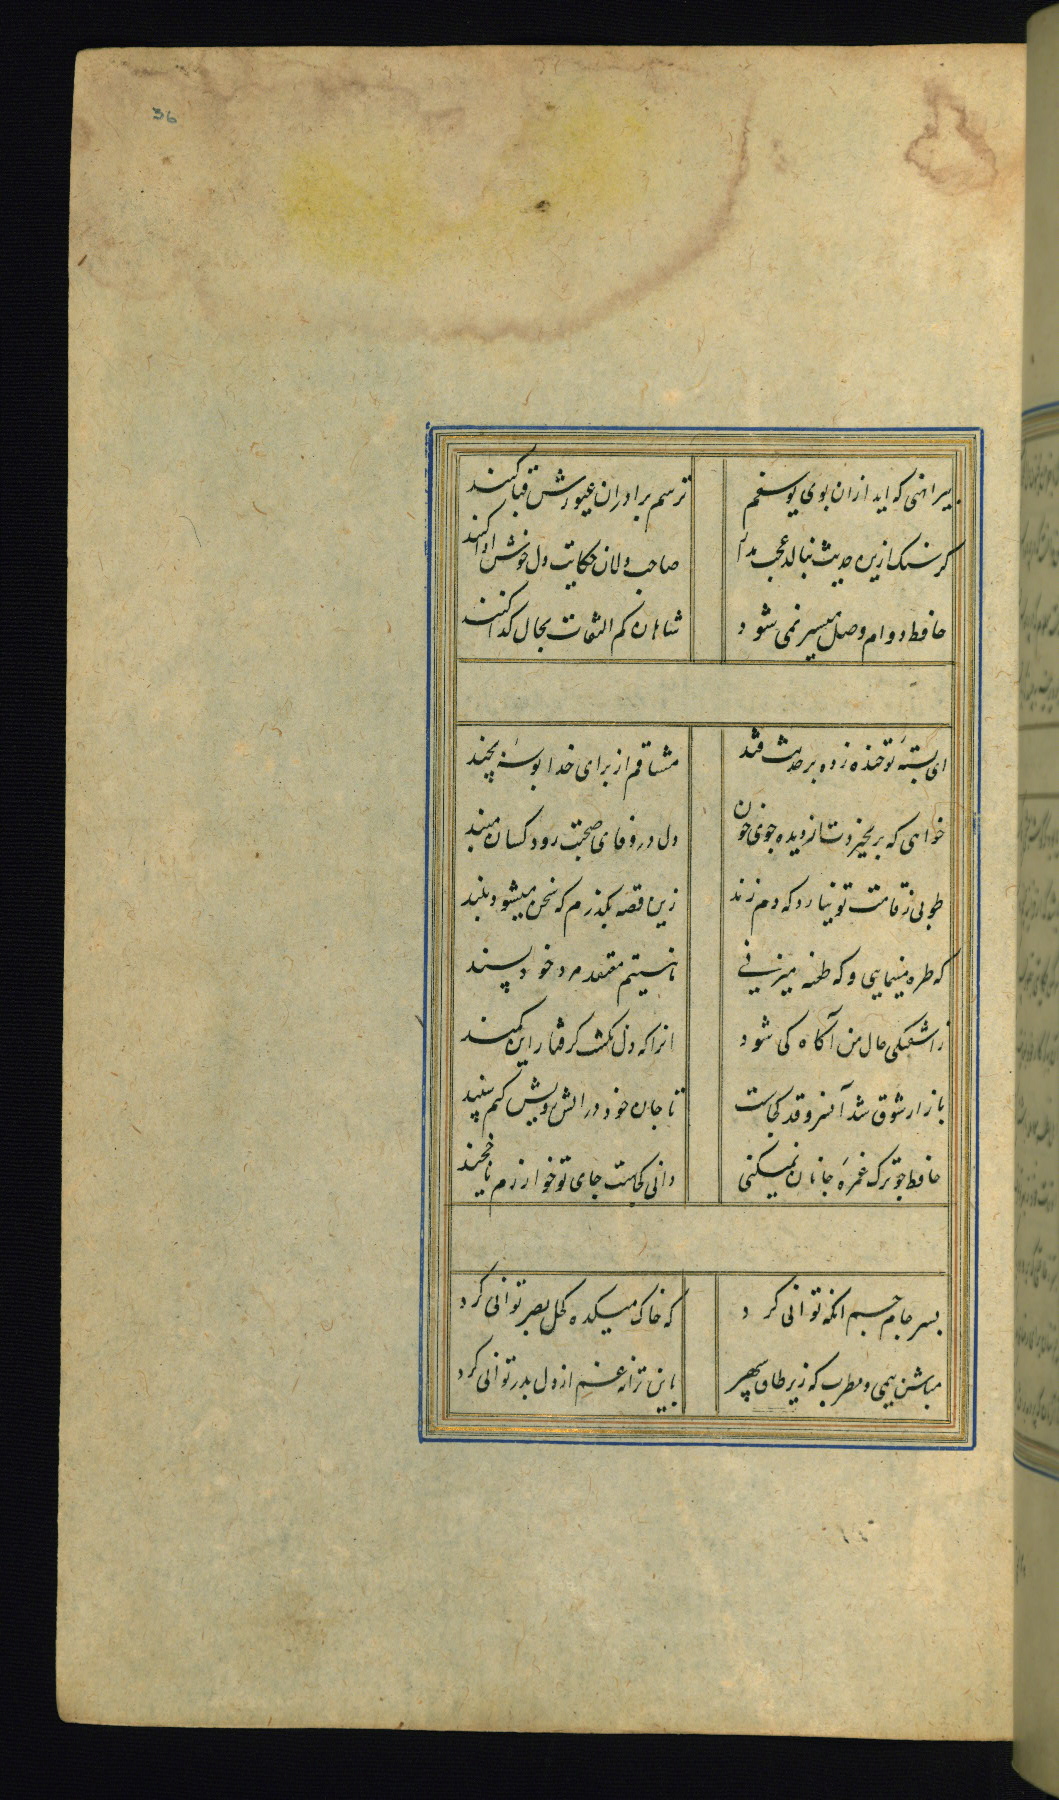 36
پیراهنی که اید ازان بوی یوسفم ترسم برادران غیورش قبا کنند
کر سنک ازین حدیث نبالد عجب مدار صاحب دلان حکایت دل خوش ادا کنند
حافظ دوام وصل میسر نمی شود شاهان کم التفات بحال کدا کنند
ای بستهٔ تو خنده زده بر حدیث قند مشتاقم از برای خدا بوسهٔ بخند
خواهی که بر نخیزدت از دیده جوی خون دل در وفای صحبت رود کسان مبند
طوبی ز قامت تو نیارد که دم زند زین قصه بکذرم که سخن میشود بلند
که طره مینمایی و که طعنه میزنی ما نیستیم معتقد مرد خود پسند
ز اشفتکی حال من آکاه کی شود انرا که دل نکشت کرفتار این کمند
بازار شوق شد آنسرو قد کجاست تا جان خود در اتش رویش کنم سپند
حافظ چو ترک غمزهٔ جانان نمیکنی دانی کجاست جای تو خوارزم یا خجند
بسر جام جم انکه توانی کرد که خاک میکده کحل بصر توانی کرد
مباش بی می و مطرب که زیر طاق سپهر باین ترانه غم از دل بدر توانی کرد